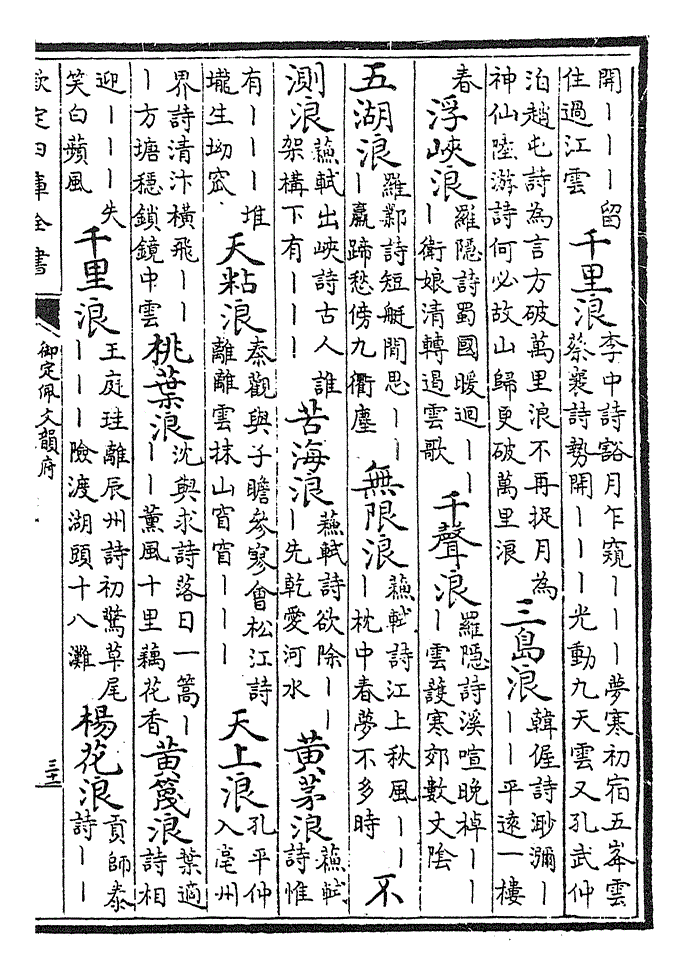 開｜｜｜留住過江雲 千里浪 李中詩豁月乍窺｜｜｜夢寒初宿五峯雲蔡襄詩勢開｜｜｜光動九天雲又孔武仲
泊趙屯詩為言方破萬里浪不再捉月為神仙陸游詩何必故山歸更破萬里浪 三島浪 韓偓詩眇彌｜｜｜平遠一樓
春 浮峽浪 羅隱詩蜀國暖迴｜｜｜衛娘清轉遏雲歌 千聲浪 羅隱詩溪喧晚棹｜｜｜雲護寒郊數丈陰
五湖浪 羅鄴詩短艇閒思｜｜｜羸蹄愁傍九衢塵 無限浪 蘇軾詩江上秋風｜｜｜枕中春夢不多時 不
測浪 蘇軾出峽詩古人誰架構下有｜｜｜ 苦海浪 蘇軾詩欲除｜｜｜先乾愛河水 黃茅浪 蘇軾詩惟
有｜｜｜堆壠生坳窊 天粘浪 秦觀與子瞻參寥會松江詩離離雲抹山窅窅｜｜｜ 天上浪 孔平仲入亳州
界詩清汴橫飛｜｜｜方塘穩鎖鏡中雲 桃葉浪 沈與求詩落日一篙｜｜｜薰風十里藕花香 黃篾浪 葉適詩相
迎｜｜｜失笑白蘋風 千里浪 王庭珪離辰州詩初驚草尾｜｜｜險渡湖頭十八灘 楊花浪 貢師泰詩｜｜
欽定四庫全書
御定佩文韻府